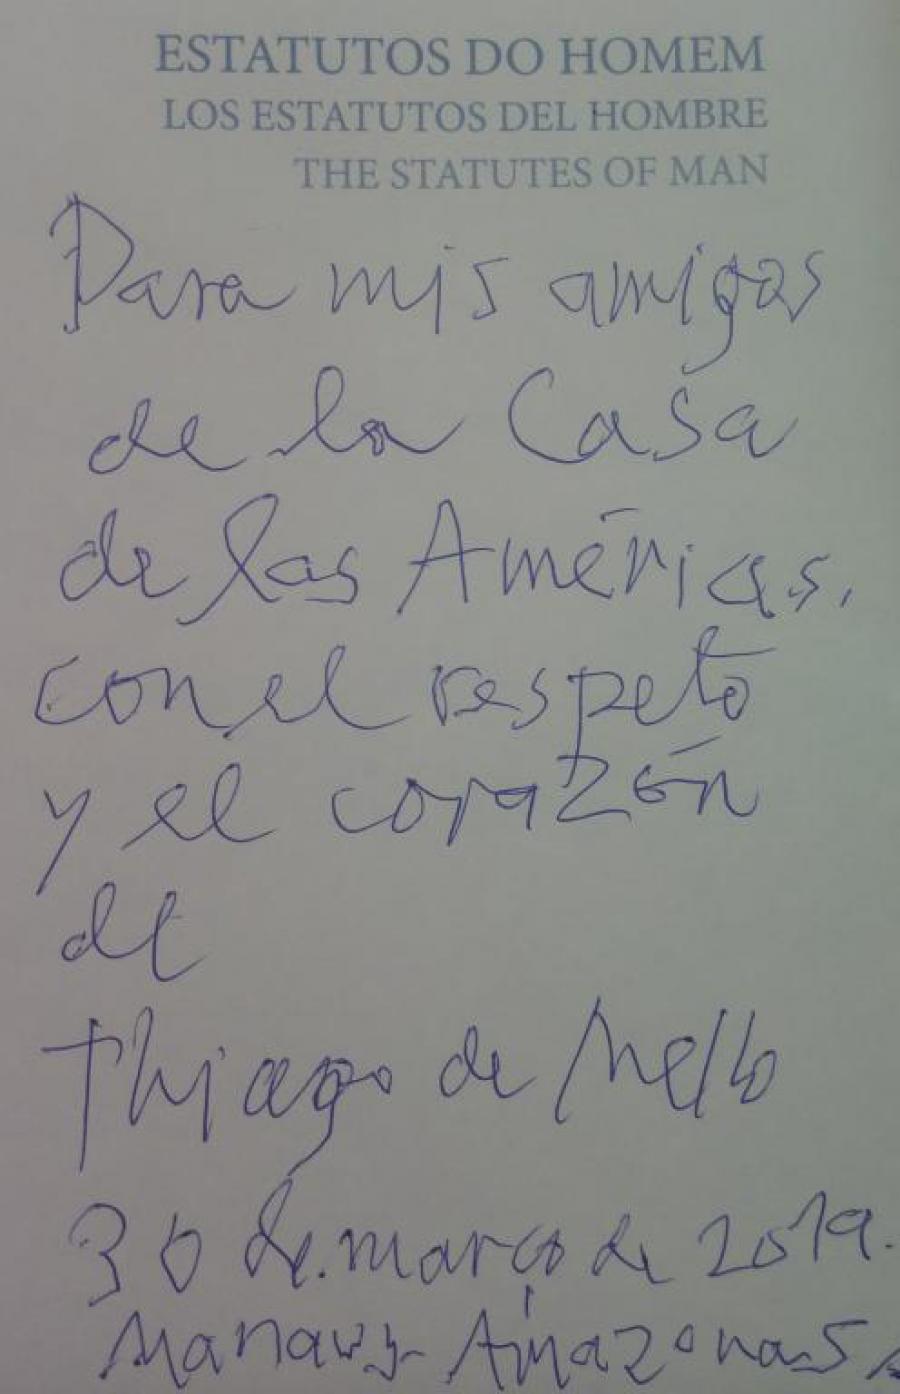 ESTATUTOS DO HOMEM
LOS ESTATUTOS DEL HOMBRE
THE STATUTES OF MAN
Para mis amigos
de la Casa
de las Américas,
con el respeto
y el corazón
de
Thiago de Mello
30 de março de 2019.
Manaus Amazonas